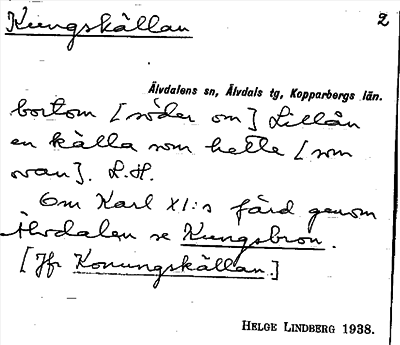 Kungskällan 2
Älvdalens sn, Älvdals tg, Kopparbergs län.
bortom [söder om] Lillån
en källa som hette [som
ovan]. L.H.
Om Karl XI:s färd genom
Älvdalen se Kungsbron.
[Jfr Konungskällan.]
HELGE LINDBERG 1938.